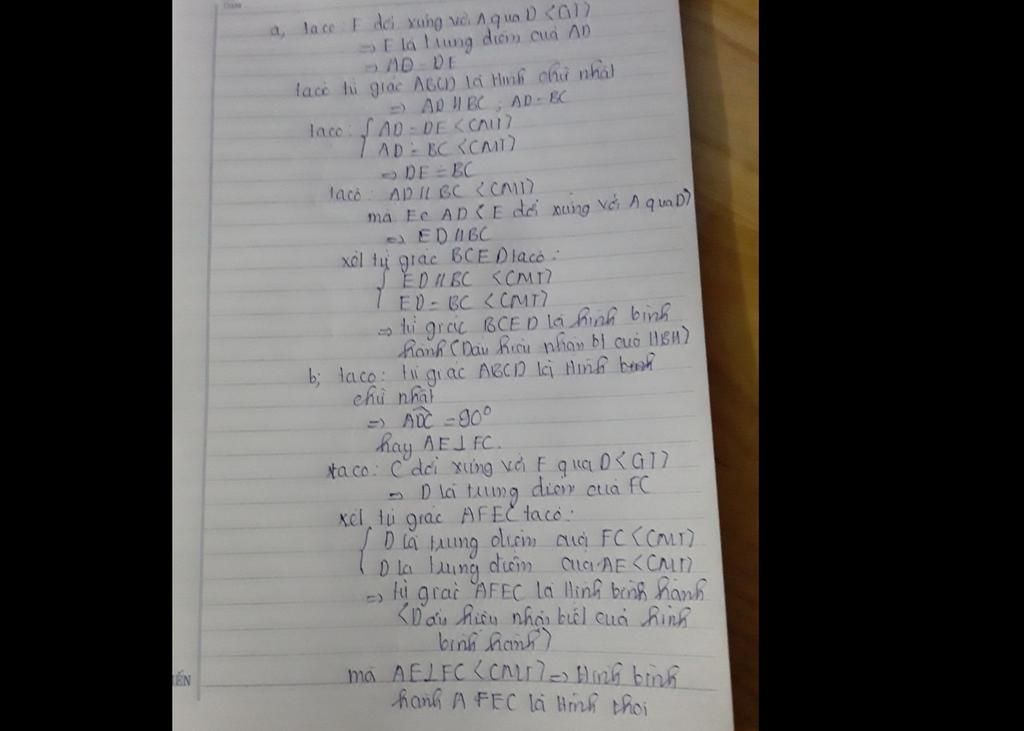 a, taco: E đối xứng với A qua D <GT>
=> E là trung điểm của AD
=> AD = DE
taco tứ giác ABCD là Hình chữ nhật
=> AD // BC ; AD = BC
taco: { AD = DE <CMT>
AD = BC <CMT>
=> DE = BC
taco: AD // BC <CMT>
mà E ∈ AD < E đối xứng với A qua D>
=> ED // BC
xét tứ giác BCED taco:
{ ED // BC <CMT>
ED = BC <CMT>
=> tứ giác BCED là hình bình
hành (Dấu hiệu nhận bt của HBH)
b; taco: tứ giác ABCD là Hình
chữ nhật
=> ADC = 90°
hay AE ⊥ FC.
taco: C đối xứng với F qua D <GT>
=> D là trung điểm của FC
xét tứ giác AFEC taco:
{ D là trung điểm của FC <CMT>
D là trung điểm của AE <CMT>
=> tứ giác AFEC là Hình bình hành
<Dấu hiệu nhận biết của hình
bình hành>
mà AE ⊥ FC <CMT> => Hình bình
hành AFEC là Hình thoi